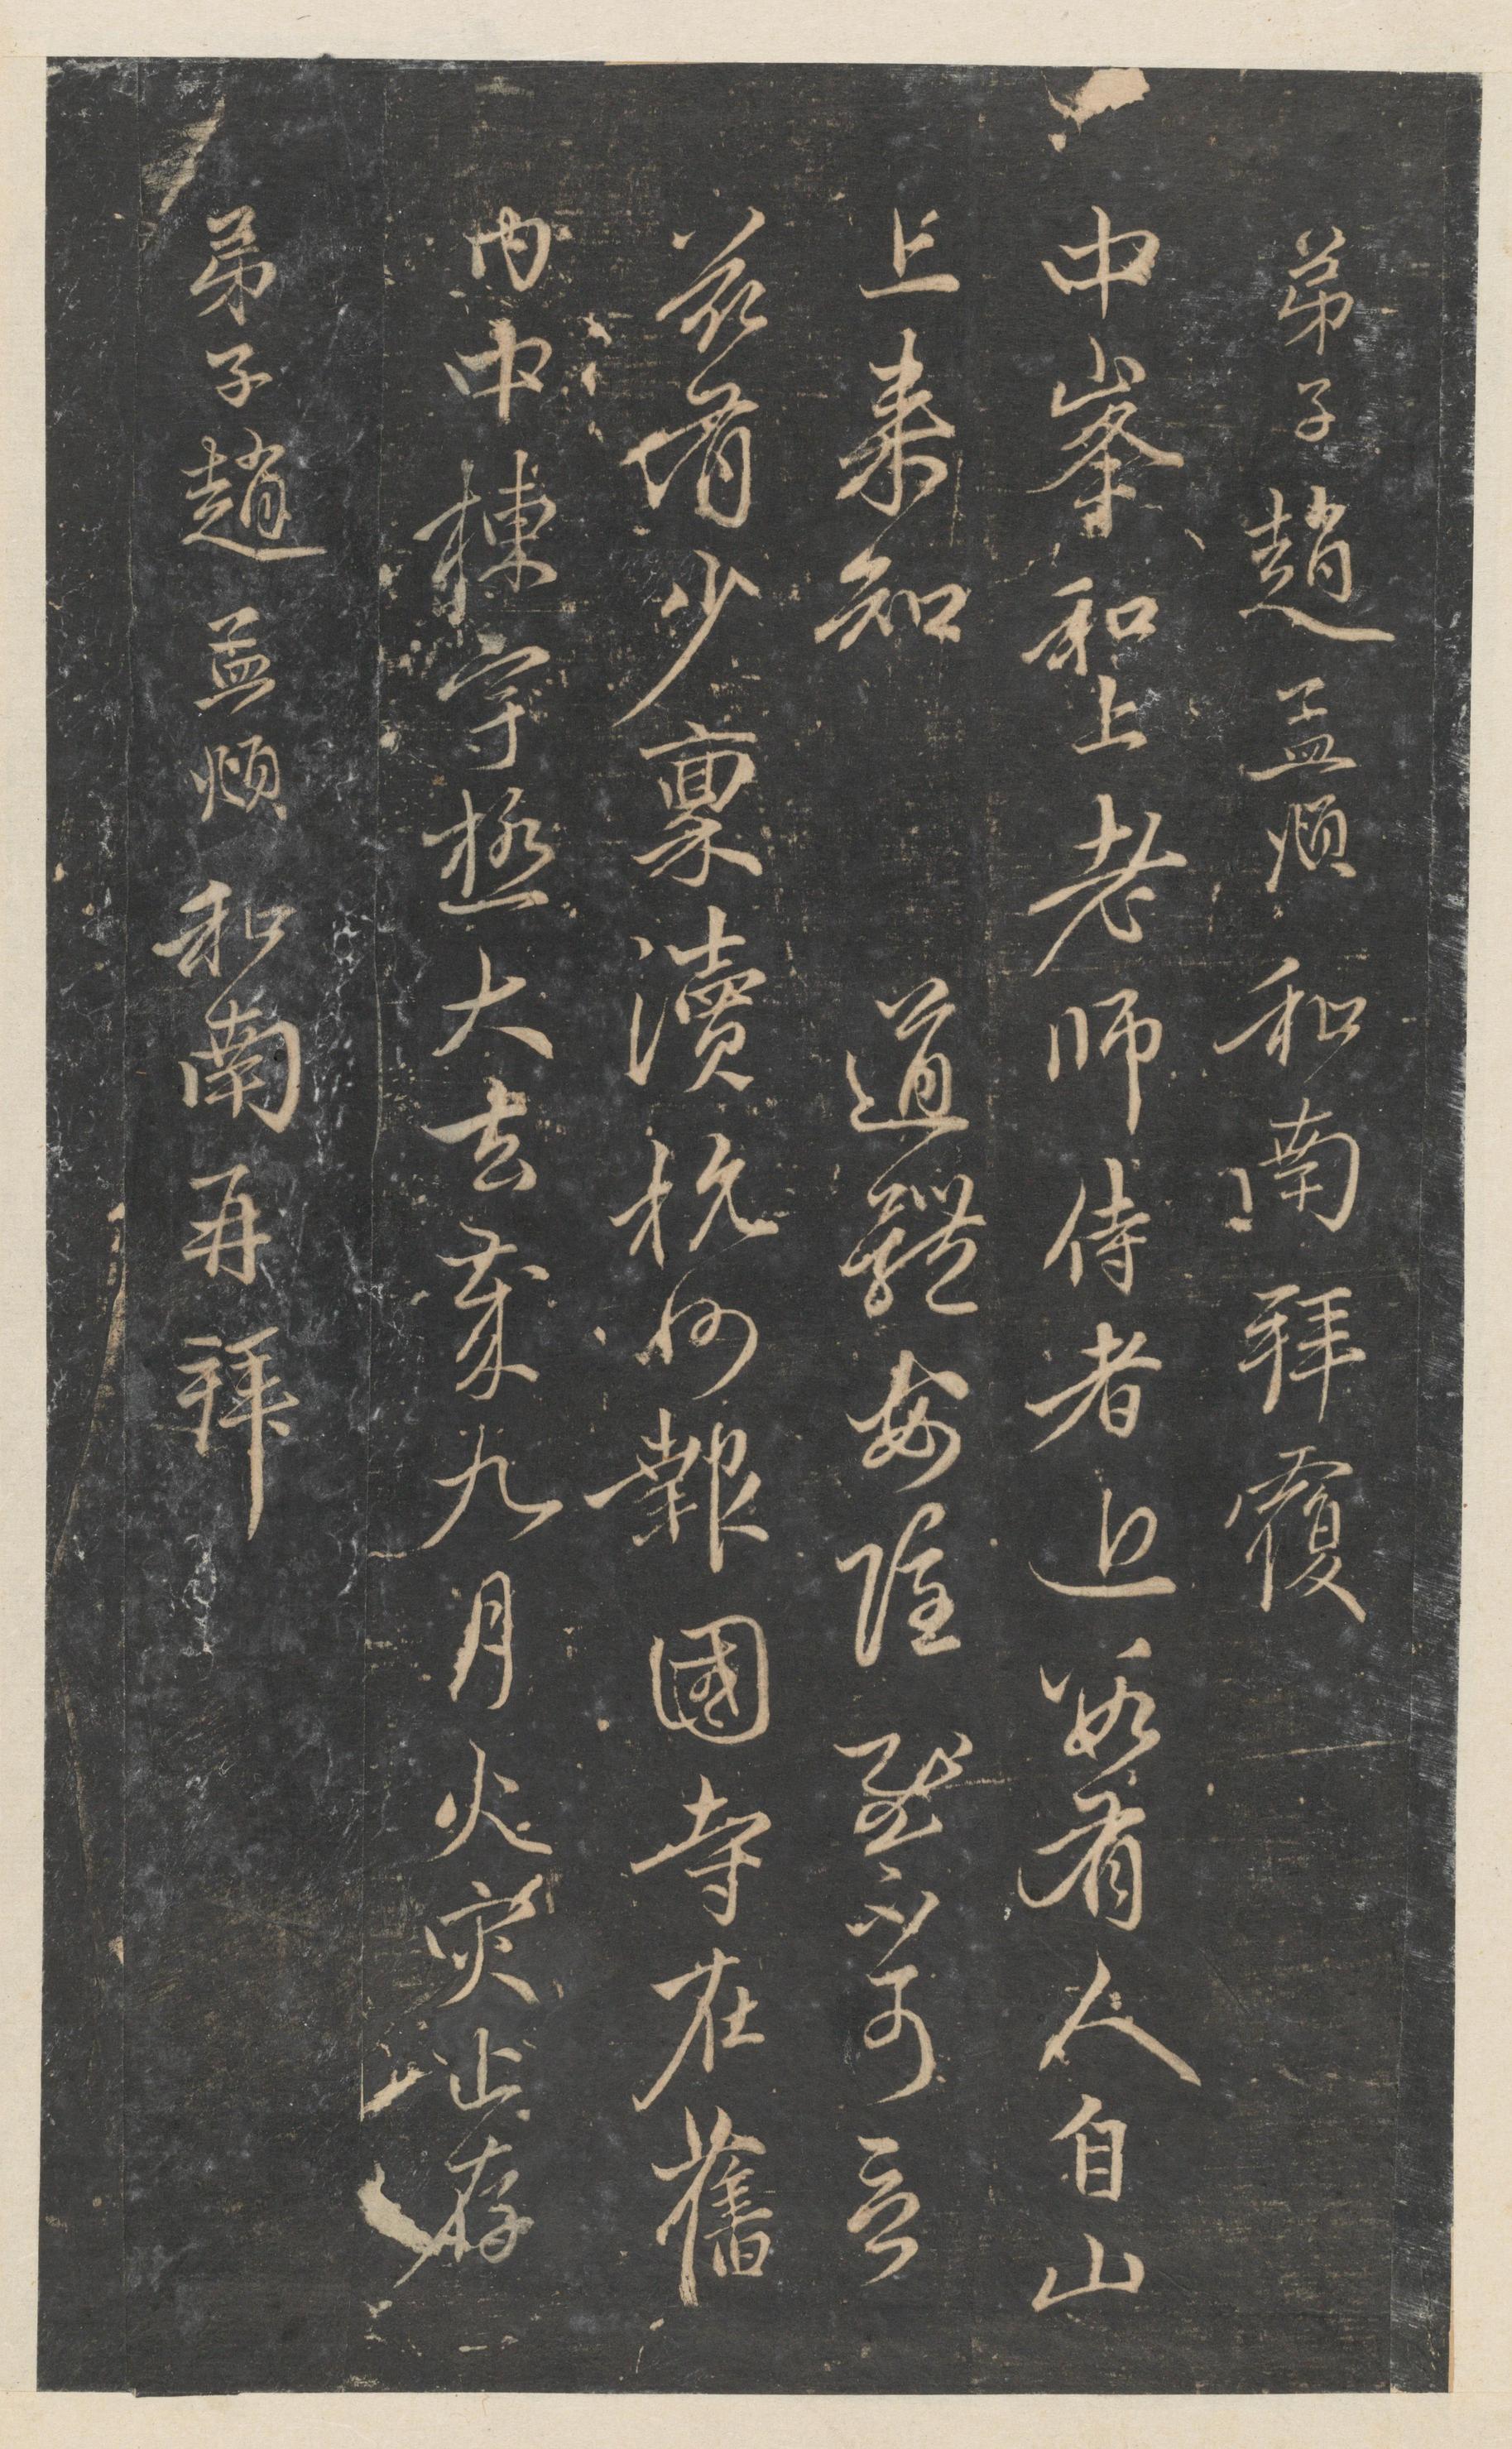 弟子趙孟頫和南拜覆
中峯和上老師侍者近若有人自山
上来知道體安隱慰不可言
茲有少稟瀆杭州報國寺在舊
内中棟宇極大去歲九月火災止存
弟子趙孟頫和南再拜